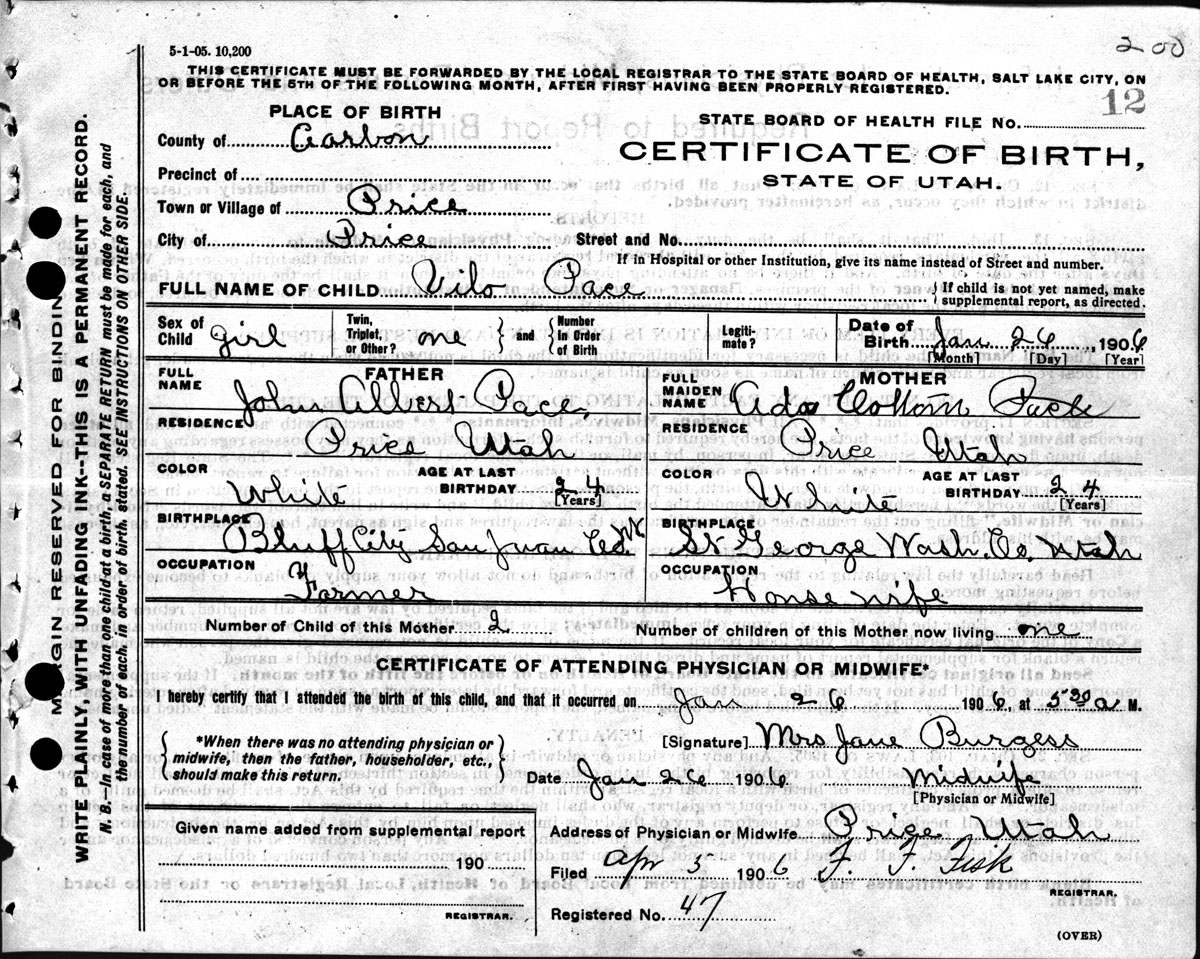 2 00
5-1-05. 10,200
THIS CERTIFICATE MUST BE FORWARDED BY THE LOCAL REGISTRAR TO THE STATE BOARD OF HEALTH, SALT LAKE CITY, ON
OR BEFORE THE 5TH OF THE FOLLOWING MONTH, AFTER FIRST HAVING BEEN PROPERLY REGISTERED.
12
PLACE OF BIRTH
STATE BOARD OF HEALTH FILE No.
County of Carbon
CERTIFICATE OF BIRTH,
STATE OF UTAH.
Precinct of
Town or Village of Price
City of Price Street and No.
If in Hospital or other Institution, give its name instead of Street and number.
FULL NAME OF CHILD Vilo Pace { If child is not yet named, make supplemental report, as directed.
Sex of Child girl Twin, Triplet, or Other? one } and { Number in Order of Birth Legiti- mate? Date of Birth Jan 26 1906
[Month] [Day] [Year]
FATHER MOTHER
FULL NAME John Albert Pace FULL MAIDEN NAME Ada Cottom Pace
RESIDENCE Price Utah RESIDENCE Price Utah
COLOR White AGE AT LAST BIRTHDAY 24 [Years] COLOR White AGE AT LAST BIRTHDAY 24 [Years]
BIRTHPLACE Bluff City San Juan Co. BIRTHPLACE St George Wash. Co. Utah
OCCUPATION Farmer OCCUPATION House wife
Number of Child of this Mother 2 Number of children of this Mother now living one
CERTIFICATE OF ATTENDING PHYSICIAN OR MIDWIFE*
I hereby certify that I attended the birth of this child, and that it occurred on Jan 26 1906, at 5 30 a M.
{ *When there was no attending physician or midwife, then the father, householder, etc., should make this return. }
[Signature] Mrs Jane Burgess
Date Jan 26 1906 Midwife
[Physician or Midwife]
Given name added from supplemental report
190
REGISTRAR.
Address of Physician or Midwife Price Utah
Filed Apr 5 1906 F. F. Fisk
REGISTRAR.
Registered No. 47
(OVER)
MARGIN RESERVED FOR BINDING
WRITE PLAINLY, WITH UNFADING INK--THIS IS A PERMANENT RECORD.
N. B.--In case of more than one child at a birth, a SEPARATE RETURN must be made for each, and
the number of each, in order of birth, stated. SEE INSTRUCTIONS ON OTHER SIDE.